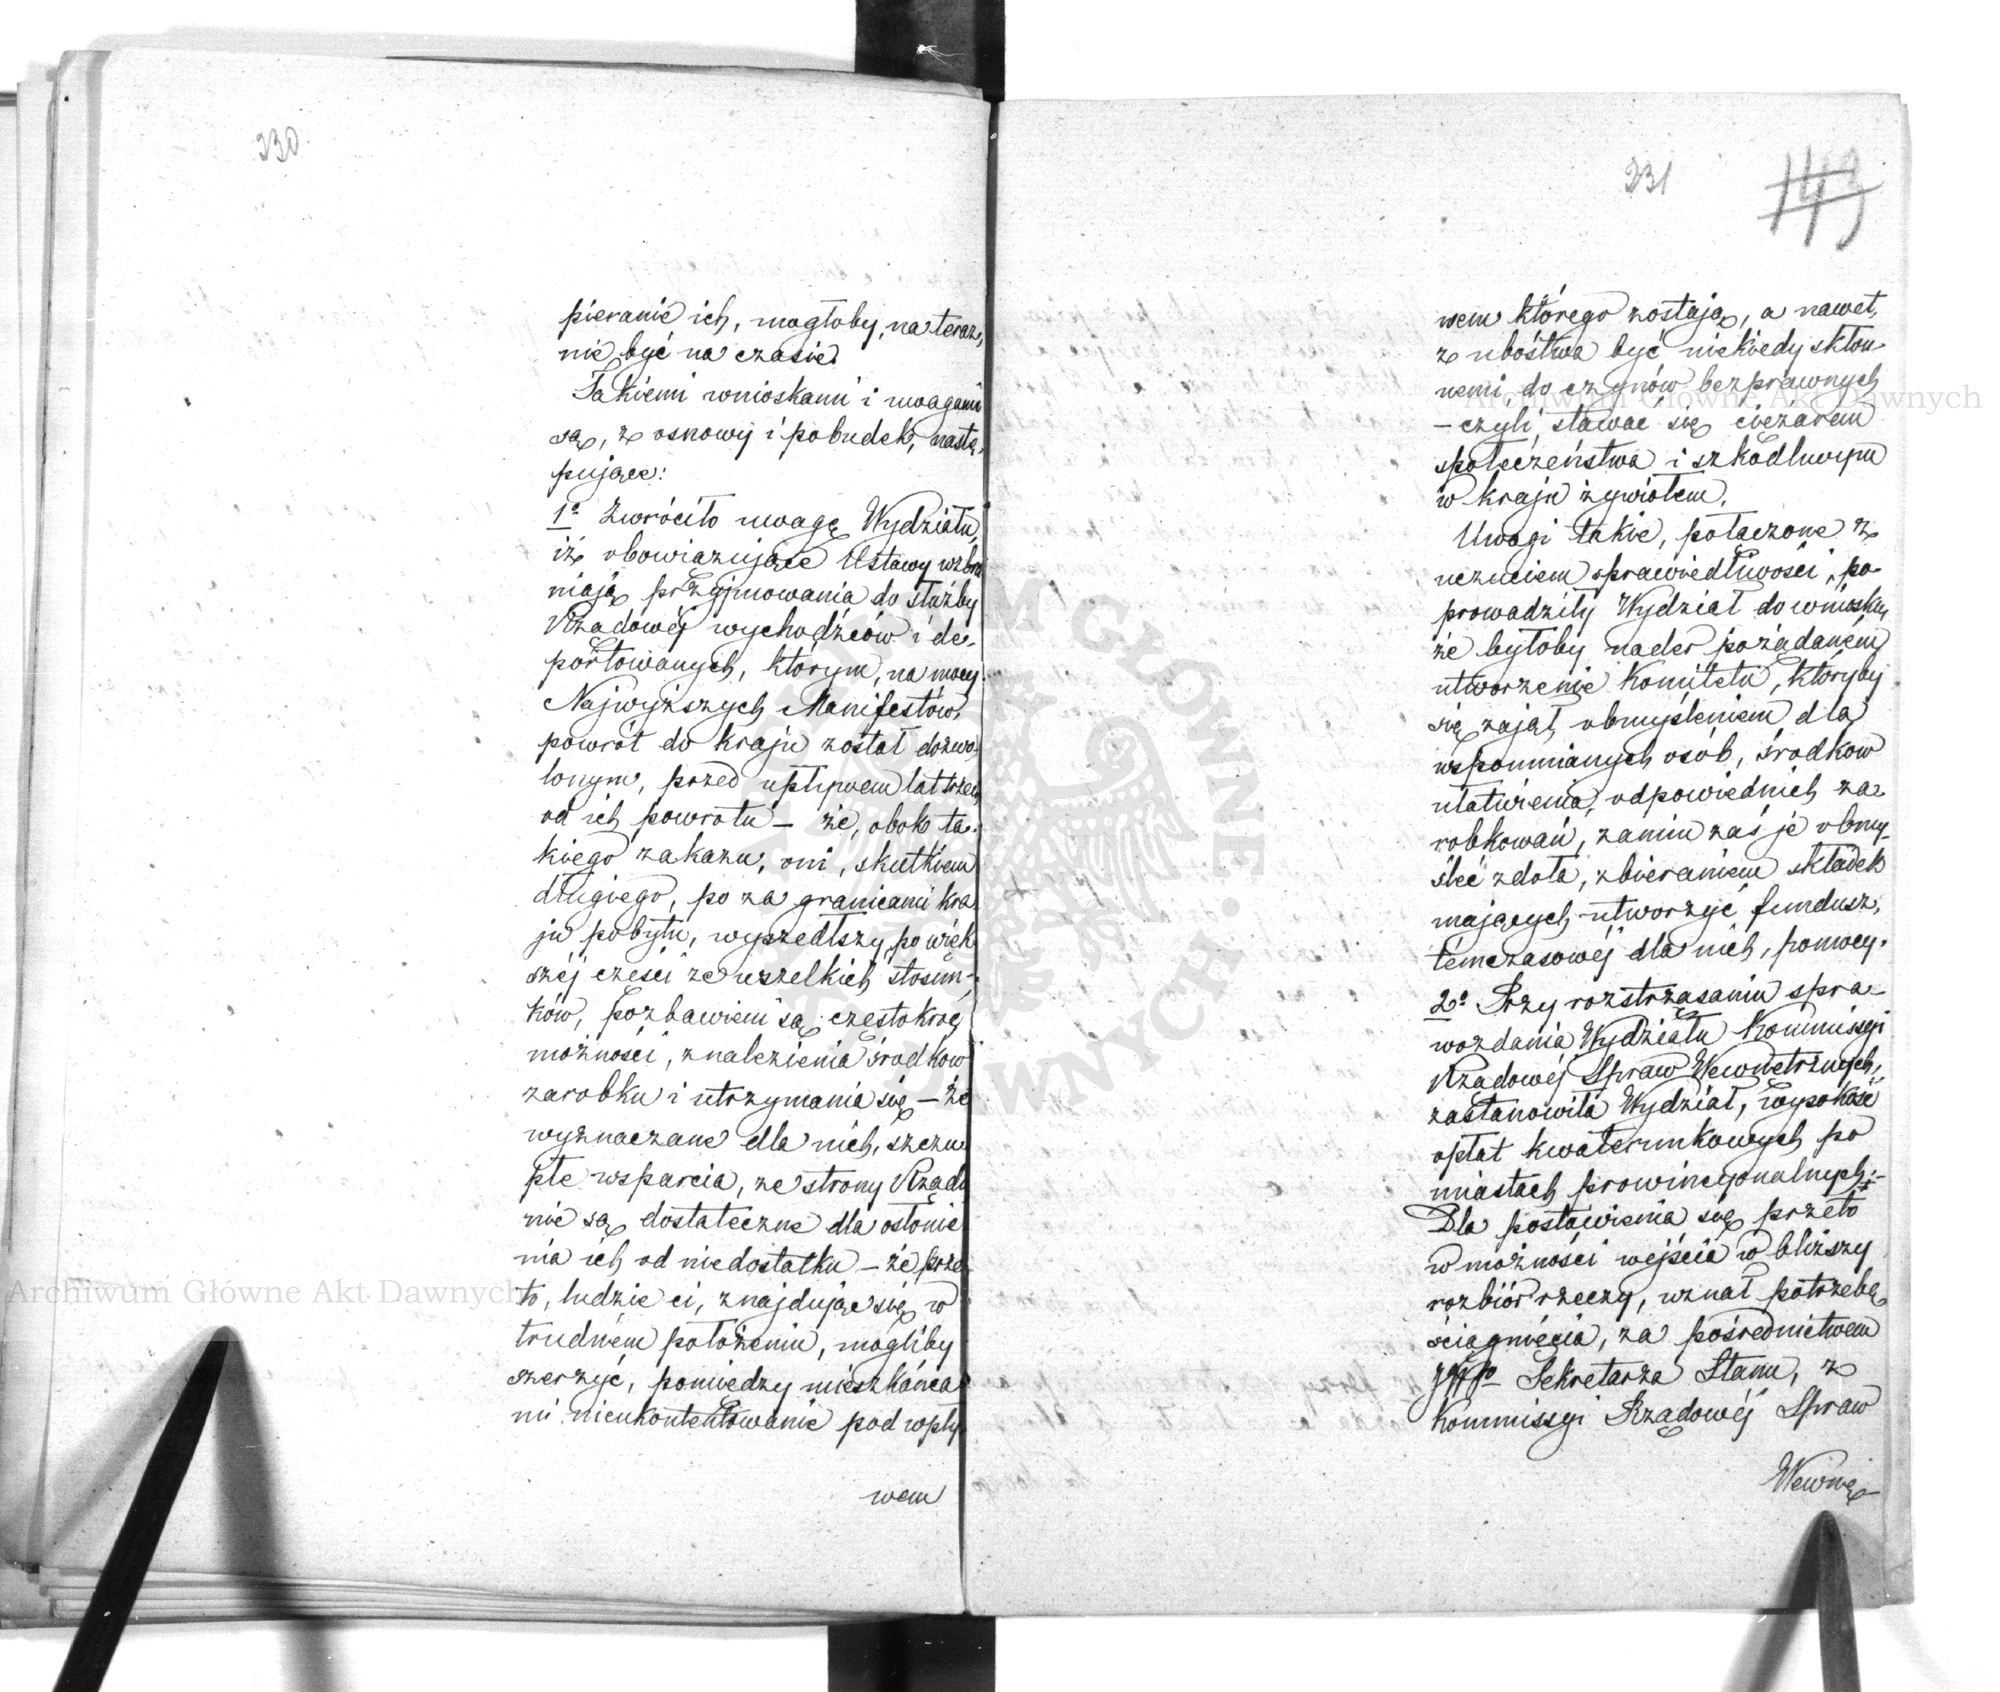 330.
pieranie ich, mogłoby, na teraz,
nie być na czasie.
Takiemi wnioskami i uwagami
są, z osnowy i pobudek, nastę-
pujące:
1o Zwróciło uwagę Wydziału,
iż obowiązujące Ustawy wzbra
niają przyjmowania do służby
Rządowéj wychodźców i de-
portowanych, którym, na mocy
Najwyższych Manifestów,
powrót do kraju został dozwo-
lonym, przed upływem lat trzech
od ich powrotu – że, obok ta-
kiego zakazu, oni, skutkiem
długiego, po za granicami kra
ju pobytu, wyszedłszy, po więk
széj części ze wszelkich stosun-
ków, pozbawieni są częstokroć
możności, znalezienia środków
zarobku i utrzymania się – że
wyznaczane dla nich, szczu
płe wsparcia, ze strony Rządu
nie są dostateczne dla osłonie
nia ich od niedostatku – że prze
to, ludzie ci, znajdując się w
trudném położeniu, mogliby
szerzyć, pomiędzy mieszkańca
mi nieukontentowanie pod wpły
wem
331
149
wem którego zostają, a nawet,
z ubóstwa być niekiedy skłon-
nemi, do czynów bezprawnych
– czyli stawać się ciężarem
społeczeństwa i szkodliwym
w kraju żywiołem.
Uwagi takie, połączone z
uczuciem sprawiedliwości, po-
prowadziły Wydział do wniosku,
że byłoby nader pożądaném
utworzenie Komitetu, któryby
się zajął obmyśleniem dla
wspomnianych osób, środków
ułatwienia, odpowiednich za-
robkowań, zanim zaś je obmy-
śleć zdoła, zbieraniem składek
mających utworzyć fundusz,
témczasowéj dla nich, pomocy.
2o Przy roztrząsaniu spra-
wozdania Wydziału Kommissyi
Rządowéj Spraw Wewnętrznych,
zastanowiła Wydział, wysokość
opłat kwaterunkowych po
miastach prowincyonalnych.–
Dla postawienia się przeto
w możności wejścia w bliższy
rozbiór rzeczy, uznał potrzebę
ściągnięcia, za pośrednictwem
Sekretarza Stanu, z
Kommissyi Rządowéj Spraw
Wewnę-
Archiwum Główne Akt Dawnych
Archiwum Główne Akt Dawnych